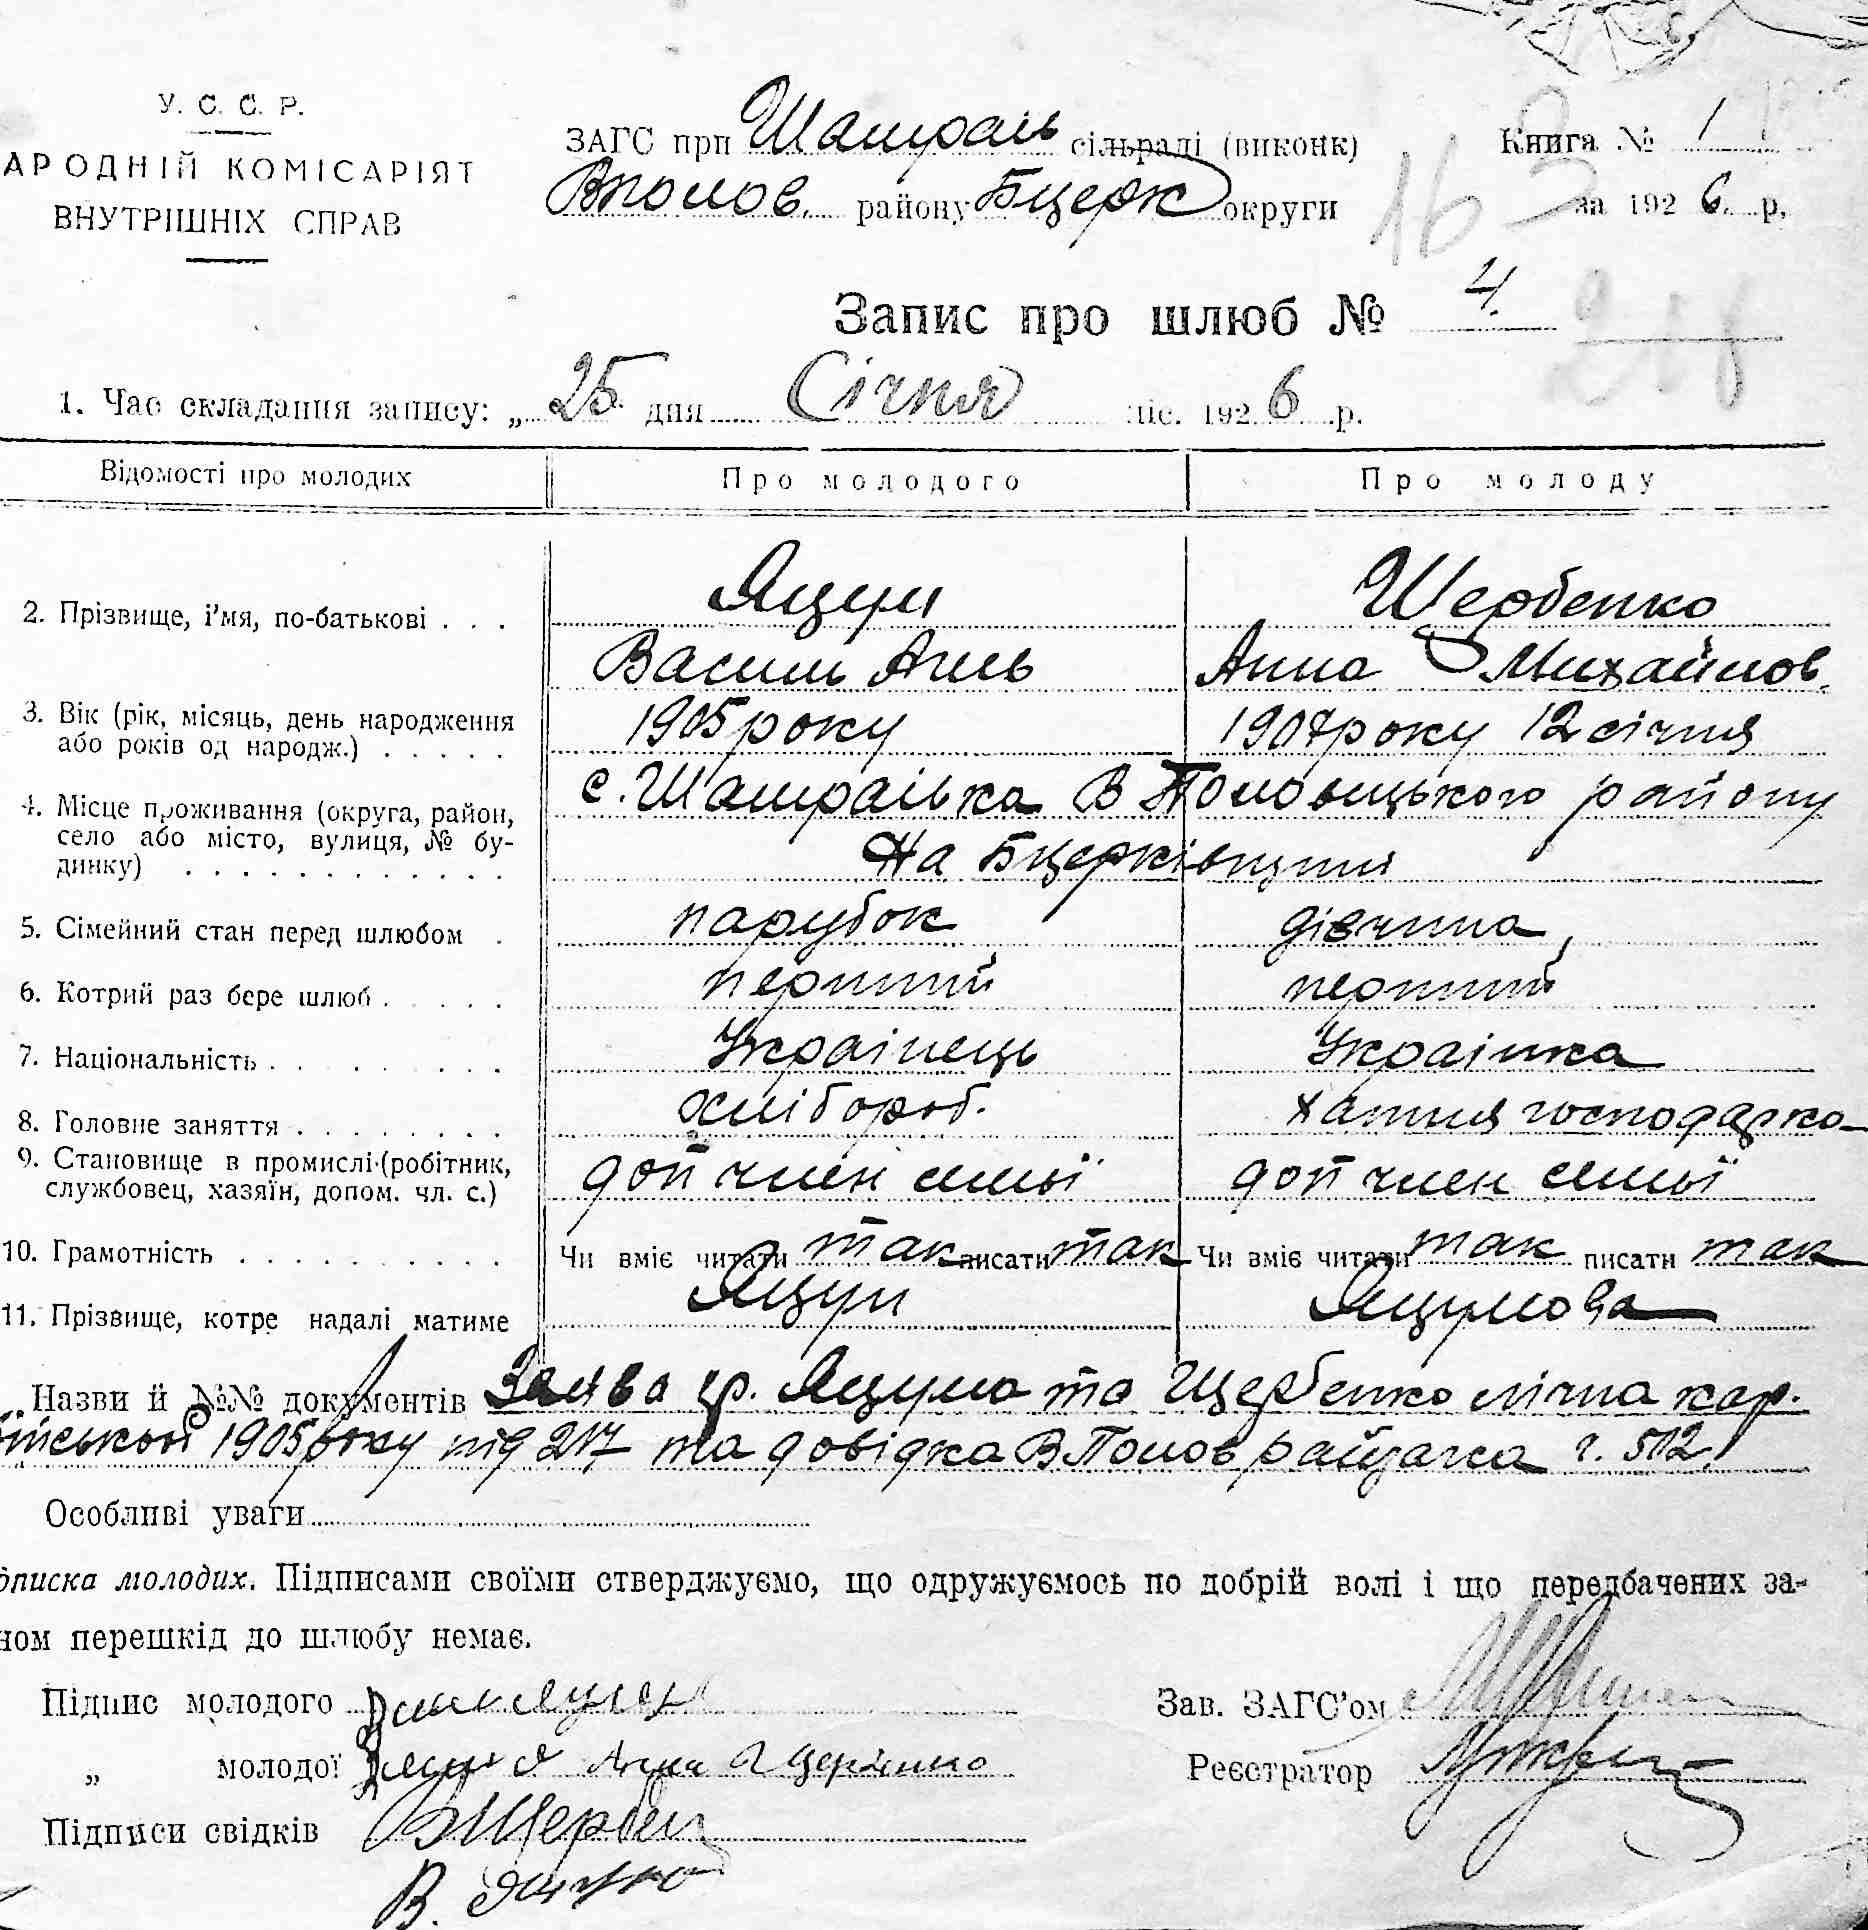 У. С. С. Р.
АРОДНІЙ КОМІСАРІЯТ
ВНУТРІШНІХ СПРАВ
ЗАГС при Шамраїв сільраді (виконк)
Вполов. району Бцерк округи
Книга № 1
за 1926 р.
16
Запис про шлюб № 4.
1. Час складання запису: „ 25 дня Січня міс. 1926 р.
Відомості про молодих Про молодого Про молоду
2. Прізвище, і'мя, по-батькові . . . Яцун Щербенко
Василь Анна Михайлов.
3. Вік (рік, місяць, день народження 1905 року 1907 року 12 січня
або років од народж.) . . . . .
4. Місце проживання (округа, район, с. Шамраївка В Половецького району
село або місто, вулиця, № бу-
динку) . . . . . . . . . . . . На Бцерківщині
5. Сімейний стан перед шлюбом . парубок дівчина,
6. Котрий раз бере шлюб . . . . . перший перший
7. Національність . . . . . . . . . Українець Українка
8. Головне заняття . . . . . . . . хлібороб. хатня господарка
9. Становище в промислі (робітник, доп член семьї доп член семьї
службовец, хазяїн, допом. чл. с.)
10. Грамотність . . . . . . . . . . Чи вміє читати так писати так Чи вміє читати так писати так
11. Прізвище, котре надалі матиме Яцун Яцунова
Назви й №№ документів Заява гр. Яцуна та Щербенко лічна кар.
1905 року під 217 та довідка В Полов. ч. 512.
Особливі уваги
описка молодих. Підписами своїми стверджуємо, що одружуємось по добрій волі і що передбачених за-
ном перешкід до шлюбу немає.
Підпис молодого
„ молодої Анна Щербенко
Підписи свідків
В.
Зав. ЗАГС'ом
Реєстратор